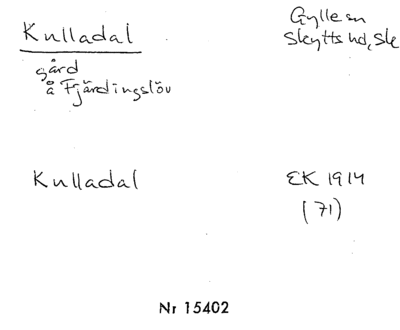 Kulladal
Gylle sn
Skytts hd, Sk
gård
å Fjärdingslöv
Kulladal
EK 1914
(71)
Nr 15402